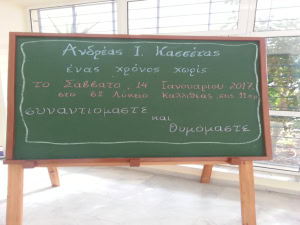 Ανδρέας Ι. Κασσέτας
ένας χρόνος χωρίς
το Σάββατο, 14 Ιανουαρίου 2017
στο 6º Λύκειο Καλλιθέας στις 7μμ
συναντιόμαστε
και
θυμόμαστε